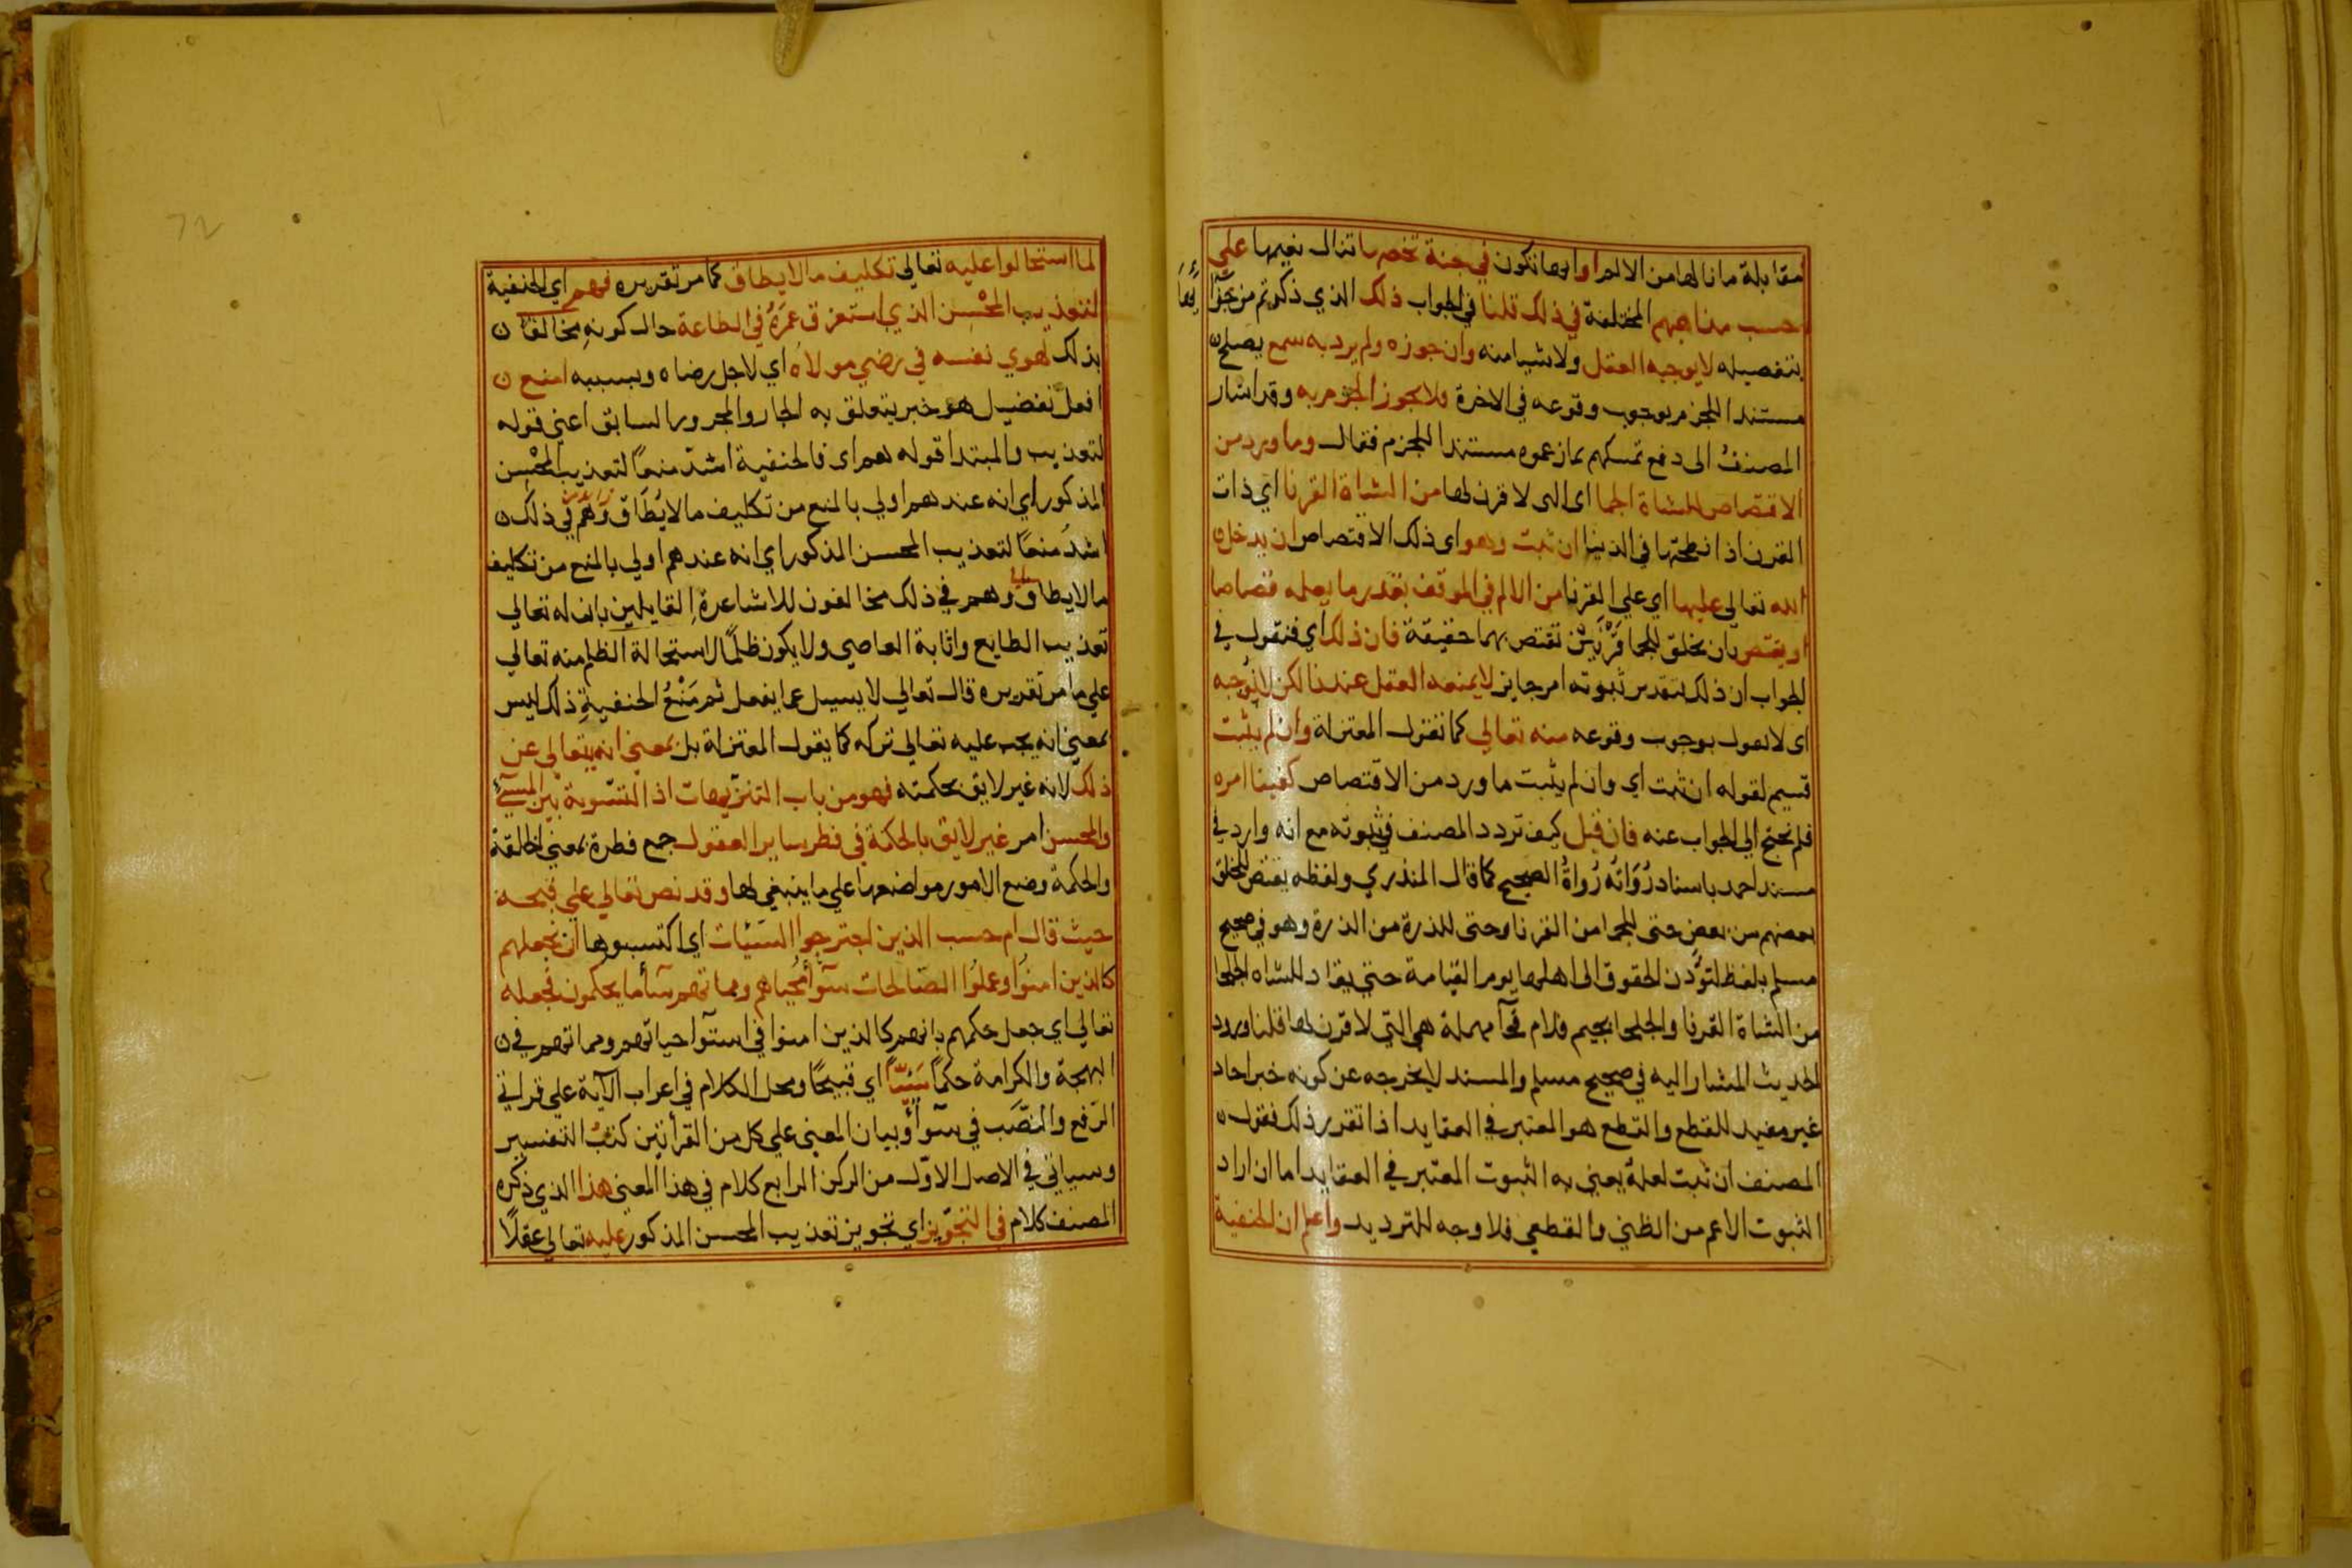 مقابلة ما نالها من الالم او انها تكون في جنة تخصها تنال نعيمها على
حسب مذاهبهم المختلفة في ذلك قلنا في الجواب ذلك الذي ذكرتم من جزا
بتفصيله لا يوجبه العقل ولا شيا منه وان جوزه ولم يرد به سمع يصلح
مستندا للجزم بوجوب وقوعه في الاخرة فلا يجوز الجزم به وقد اشار
المصنف الى دفع تمسكهم بما زعموه مستندا للجزم فقال وما ورد من
الاقتصاص للشاة الجما اى التى لا قرن لها من الشاة القرنا اي ذات
القرن اذا نطحتها في الدنيا ان ثبت وهو اى ذلك الاقتصاص ان يدخل
الله تعالى عليها اي على القرنا من الالم في الموقف بقدر ما يعلمه قصاصا
او يقتص بان يخلق للجما قرنين تقتص بهما حقيقة فان ذلك اي فنقول في
الجواب ان ذلك بتقدير ثبوته امر جايز لا يمنعه العقل عندنا لكن لا نوجبه
اى لا نقول بوجوب وقوعه منه تعالى كما تقول المعتزلة وان لم يثبت
قسيم لقوله ان ثبت اي وان لم يثبت ما ورد من الاقتصاص كفينا امره
فلم نحتج الى الجواب عنه فان قيل كيف تردد المصنف في ثبوته مع انه وارد في
مسند احمد باسناد رواته رواة الصحيح كما قال المنذري ولفظه يقتص للخلق
بعضهم من بعض حتى للجما من القرنا وحتى للذرة من الذرة وهو في صحيح
مسلم بلفظ لتؤدن الحقوق الى اهلها يوم القيامة حتى يقاد للشاه الجلحا
من الشاة القرنا والجلحا بجيم فلام فحآ مهملة هي التي لا قرن لها قلنا ورود
الحديث المشار اليه في صحيح مسلم والمسند لا يخرجه عن كونه خبر احاد
غير مفيد للقطع والقطع هو المعتبر في العقايد اذا تقرر ذلك فقول
المصنف ان ثبت لعله يعني به الثبوت المعتبر في العقايد اما ان اراد
الثبوت الاعم من الظني والقطعي فلا وجه للترديد واعلم ان الحنفية
لما استحالوا عليه تعالى تكليف ما لا يطاق كما مر تقديره فهم اي الحنفية
لتعذيب المحسن الذي استغرق عمره في الطاعة حال كونه مخالفا
بذلك لهوي نفسه في رضي مولاه اي لاجل رضاه وبسببه امنع
افعل تفضيل هو خبر يتعلق به الجار والمجرور السابق اعني قوله
لتعذيب والمبتدا قوله هم اى فالحنفية اشد منعا لتعذيب المحسن
المذكور اي انه عندهم اولي بالمنع من تكليف ما لا يطاق وهم في ذلك
اشد منعا لتعذيب المحسن المذكور اي انه عندهم اولي بالمنع من تكليف
ما لا يطاق وهم في ذلك مخالفون للاشاعرة القايلين بان له تعالى
تعذيب الطايع واثابة العاصي ولا يكون ظلما لاستحالة الظلم منه تعالى
على ما مر تقديره قال تعالى لا يسيل عما يفعل ثم منع الحنفية ذلك ليس
بمعنى انه يجب عليه تعالى تركه كما يقول المعتزلة بل بمعنى انه يتعالى عن
ذلك لانه غير لايق بحكمته فهو من باب التنزيهات اذ التسوية بين المسئ
والمحسن امر غير لايق بالحكمة في فطر ساير العقول جمع فطرة بمعنى الخلقة
والحكمة وضع الامور مواضعها على ما ينبغي لها وقد نص تعالى على قبحه
حيث قال ام حسب الذين اجترحوا السيئات اي اكتسبوها ان نجعلهم
كالذين امنوا وعملوا الصالحات سوآ محياهم ومماتهم سآ ما يحكمون فجعله
تعالى اي جعل حكمهم بانهم كالذين امنوا في استوآ حياتهم ومماتهم في
البهجة والكرامة حكما سيئا اي قبيحا ومحل الكلام في اعراب الآية على قراتي
الرفع والنصب في سوآ وبيان المعنى على كل من القرأتين كتب التفسير
وسياتي في الاصل الاول من الركن الرابع كلام في هذا المعنى هذا الذي ذكره
المصنف كلام في التجويز اي تجويز تعذيب المحسن المذكور عليه تعالى عقلا